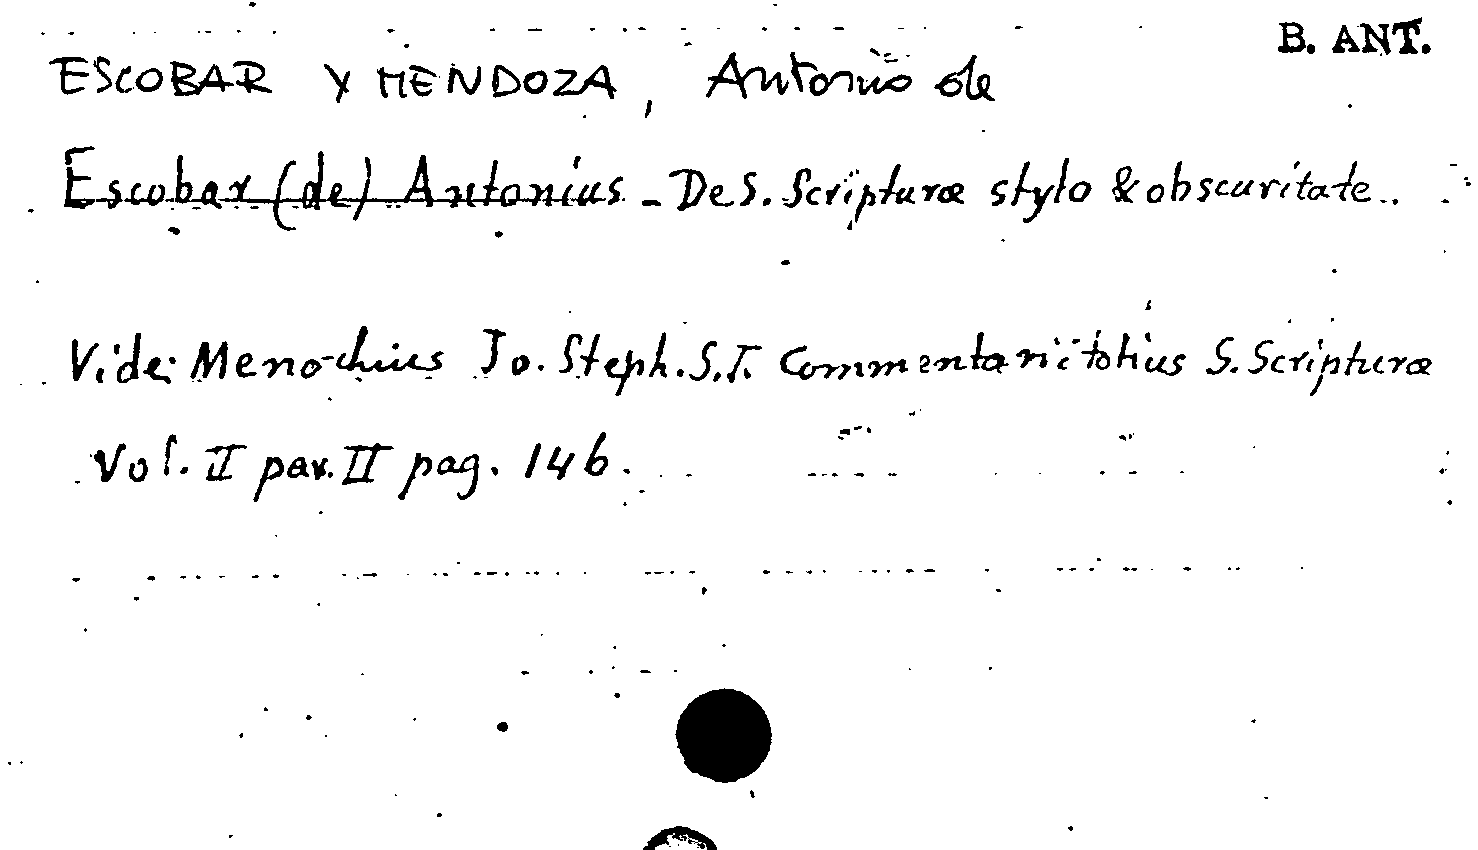 B. ANT.
ESCOBAR Y MENDOZA, Antonio de
Escobar (de) Antonius - De S. Scripturæ stylo & obscuritate.
Vide: Menochius Jo. Steph. S.I. Commentarii totius S. Scripturæ
Vol. II par. II pag. 146.